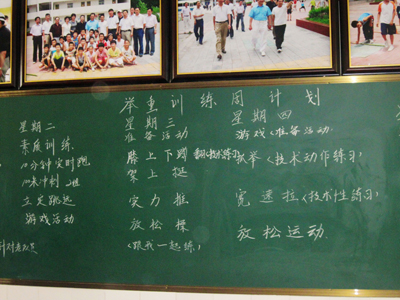 举重训练周计划
星期二
素质训练
10分钟定时跑
立定跳远
游戏活动
星期三
准备活动
膝上下蹲
架上挺
实力推
放松操
(跟我一起练)
星期四
游戏(准备活动
抓举(技术动作练习)
宽速拉(技术性练习)
放松运动